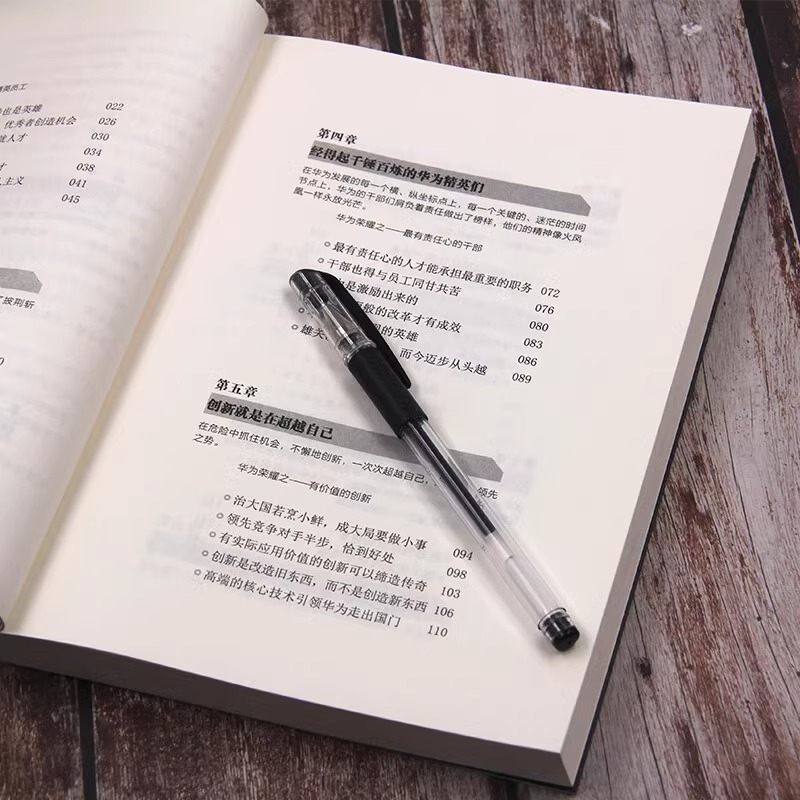 精英员工
也是英雄 022
优秀者创造机会 026
人才 030
034
才 038
主义 041
045
披荆斩
第四章
经得起千锤百炼的华为精英们
在华为发展的每一个横、纵坐标点上，每一个关键的、迷茫的时间
节点上，华为的干部们肩负着责任做出了榜样，他们的精神像火凤
凰一样永放光芒。
华为荣耀之——最有责任心的干部
最有责任心的人才能承担最重要的职务 072
干部也得与员工同甘共苦 076
也是激励出来的 080
般的改革才有成效 083
的英雄 086
雄关 而今迈步从头越 089
第五章
创新就是在超越自己
在危险中抓住机会，不懈地创新，一次次超越自己， 领先
之势。
华为荣耀之——有价值的创新
治大国若烹小鲜，成大局要做小事 094
领先竞争对手半步，恰到好处 098
有实际应用价值的创新可以缔造传奇 103
创新是改造旧东西，而不是创造新东西 106
高端的核心技术引领华为走出国门 110